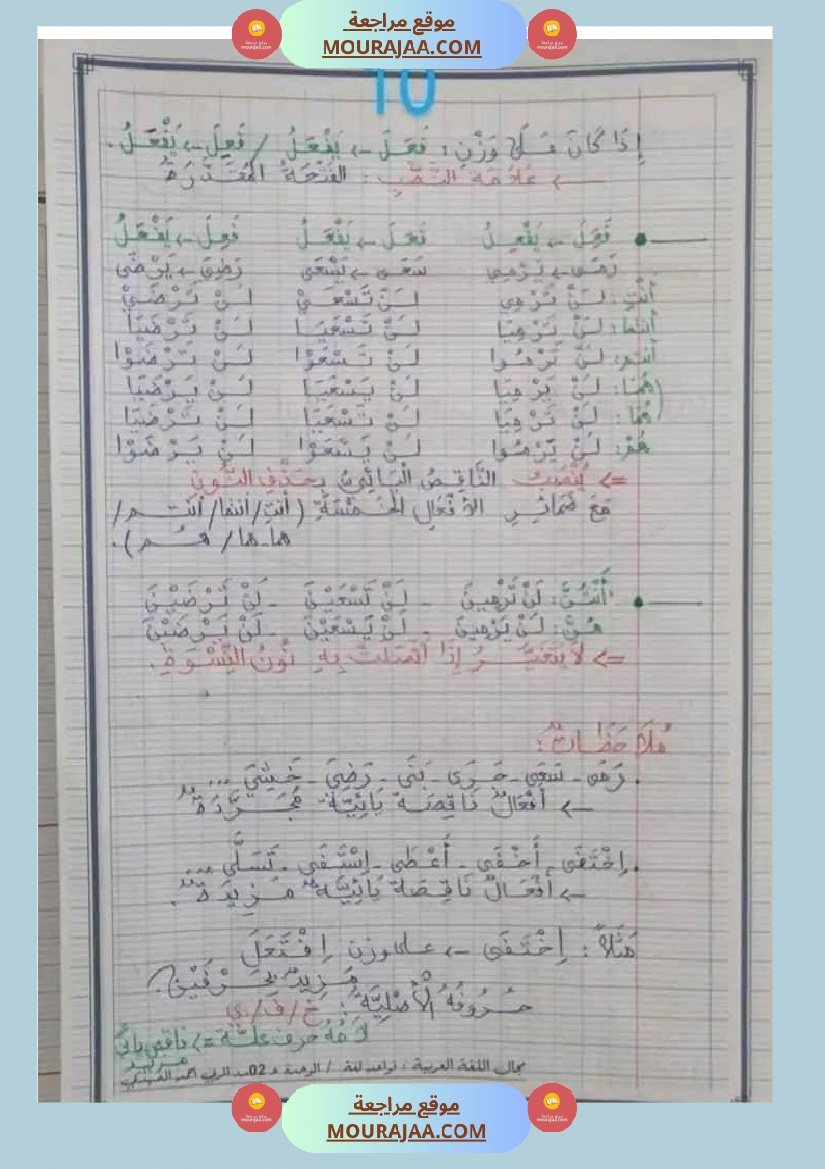 موقع مراجعة
MOURAJAA.COM
10
إِذَا كَانَ عَلَى وَزْنِ : فَعَلَ ← يَفْعَلُ / فَعِلَ ← يَفْعَلُ .
← عَلَامَة النَّصْبِ : الفَتْحَةُ المُقَدَّرَةُ
• فَعَلَ ← يَفْعِلُ فَعَلَ ← يَفْعَلُ فَعِلَ ← يَفْعَلُ
رَمَى ← يَرْمِي سَعَى ← يَسْعَى رَضِيَ ← يَرْضَى
أَنْتِ : لَنْ تَرْمِي لَنْ تَسْعَيْ لَنْ تَرْضَيْ
أنتما : لَنْ تَرْمِيَا لَنْ تَسْعَيَا لَنْ تَرْضَيَا
أنتم : لَنْ تَرْمُوا لَنْ تَسْعَوْا لَنْ تَرْضَوْا
(هُمَا : لَنْ يَرْمِيَا لَنْ يَسْعَيَا لَنْ يَرْضَيَا
هُمَا : لَنْ تَرْمِيَا لَنْ تَسْعَيَا لَنْ تَرْضَيَا
هُمْ : لَنْ يَرْمُوا لَنْ يَسْعَوْا لَنْ يَرْضَوْا
⇐ يُنْصَبُ النَّاقِصُ الْيَائِيُّ بِحَذْفِ النُّونِ
مَعَ ضَمَائِرِ الأَفْعَالِ الْخَمْسَةِ ( أنتِ / أنتما / أنتم /
هما - هما / هُم ) .
• أَنْتُنَّ : لَنْ تَرْمِينَ - لَنْ تَسْعَيْنَ - لَنْ تَرْضَيْنَ
هُنَّ : لَنْ يَرْمِينَ - لَنْ يَسْعَيْنَ - لَنْ يَرْضَيْنَ
⇐ لَا يَتَغَيَّرُ إِذَا اتَّصَلَتْ بِهِ نُونُ النِّسْوَةِ .
مُلَاحَظَاتٌ :
. رَمَى - سَعَى - جَرَى - بَنَى - رَضِيَ - خَشِيَ ...
← أَفْعَالٌ نَاقِصَةٌ يَائِيَّةٌ مُجَرَّدَةٌ
. اِخْتَفَى - أَخْفَى - أَعْطَى - اِسْتَفَى - تَسَلَّى ...
← أَفْعَالٌ نَاقِصَةٌ يَائِيَّةٌ مَزِيدَةٌ .
مَثَلاً : اِخْتَفَى ← على وزن اِفْتَعَلَ
مَزِيدٌ بِحَرْفَيْنِ
حُرُوفُهُ الْأَصْلِيَّةُ : خ / ف / ي
لَامُهُ حرف علّة ⇐ ناقص يائيّ
مزيد
مجال اللغة العربية : قواعد لغة / الوحدة 02
موقع مراجعة
MOURAJAA.COM